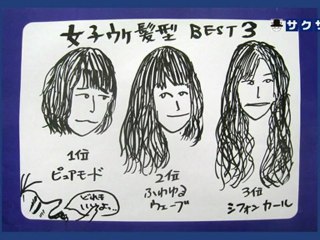 サクサ
女子ウケ髪型 BEST 3
1位
ピュアモード
2位
ふわゆる
ウェーブ
3位
シフォンカール
どれも
いいよね…